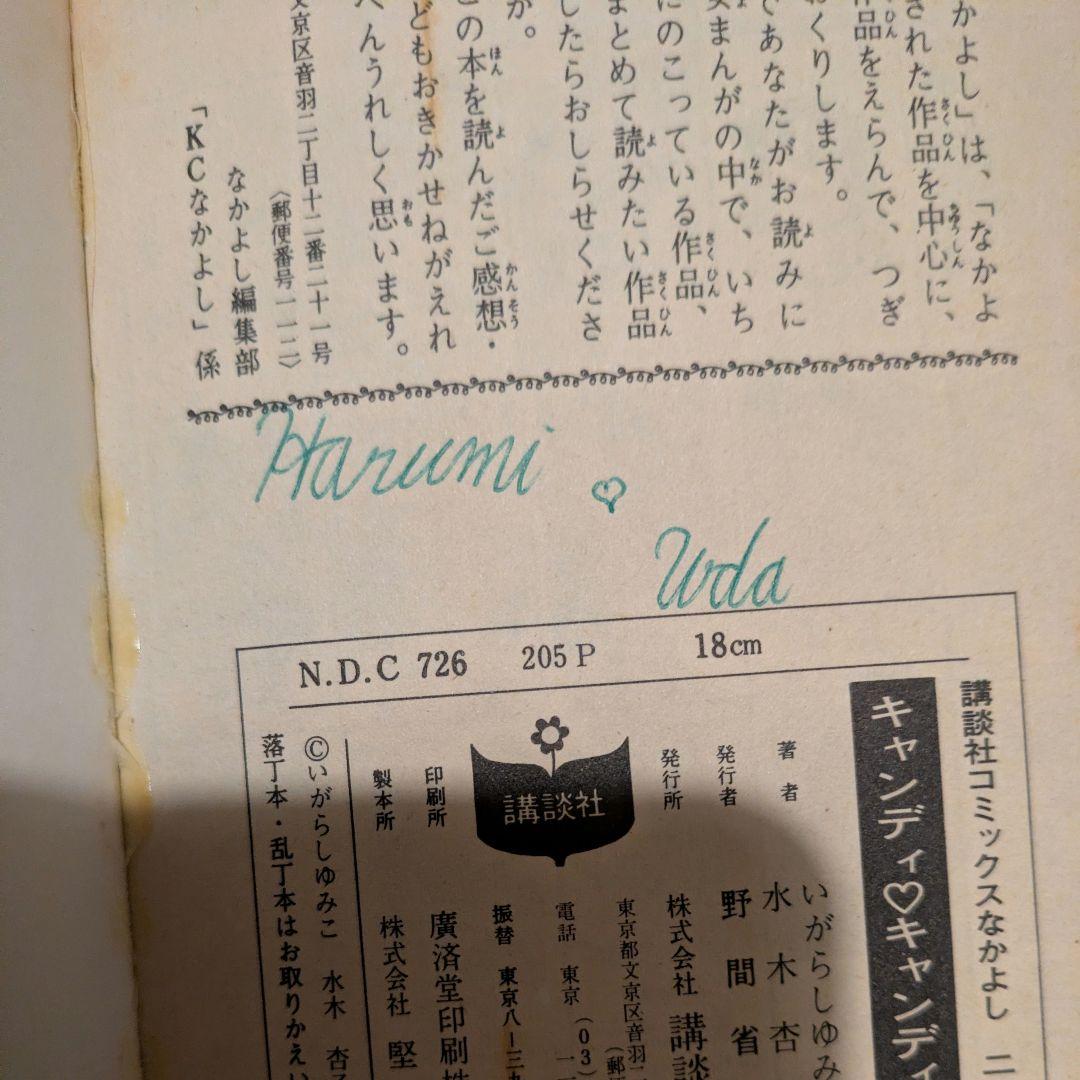 かよし」は、「なかよ
された作品を中心に、
作品をえらんで、つぎ
おくりします。
であなたがお読みに
まんがの中で、いち
にのこっている作品、
まとめて読みたい作品
したらおしらせくださ
か。
この本を読んだご感想・
どもおきかせねがえれ
へんうれしく思います。
文京区音羽二丁目十二番二十一号
〈郵便番号一一二〉
なかよし編集部
「KCなかよし」係
Harumi ♡
Uda
N.D.C 726 205P 18cm
講談社コミックスなかよし
キャンディ♡キャンディ
著者 いがらしゆみ
水木杏
発行者 野間省
発行所 株式会社 講談
東京都文京区音羽二
電話 東京(03)
振替 東京八-三九
講談社
印刷所 廣済堂印刷株
製本所 株式会社 堅
©いがらしゆみこ 水木杏子
落丁本・乱丁本はお取りかえい